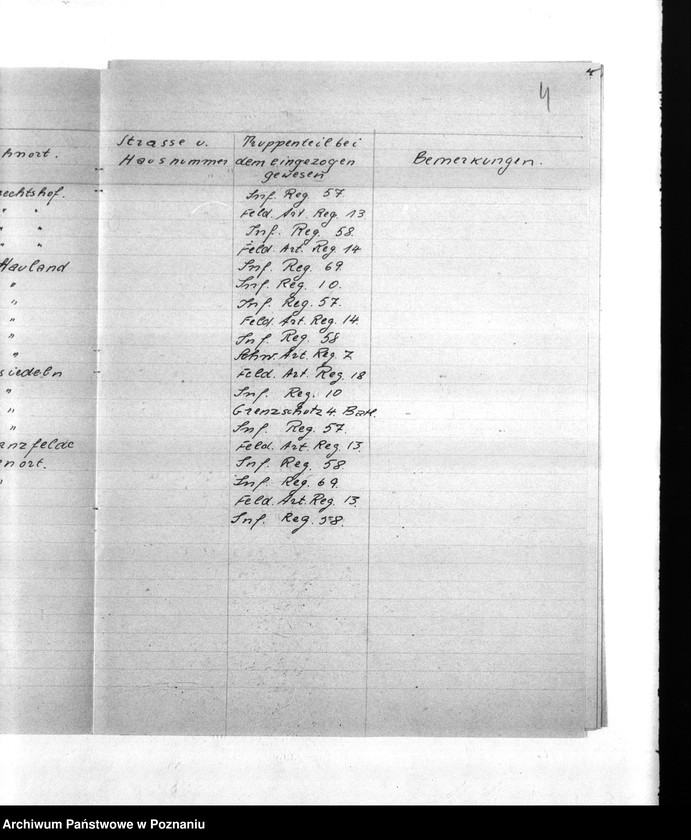 4
Strasse u. Truppenteil bei
hnort. Hausnummer dem eingezogen Bemerkungen.
gewesen
echtshof. Inf. Reg. 57.
" " Feld. Art. Reg. 13
" " Inf. Reg. 58.
" " Feld. Art. Reg 14
Hauland Inf. Reg. 69.
" Inf. Reg. 10.
" Inf. Reg. 57.
" Feld. Art. Reg. 14.
" Inf. Reg. 58
" Schw. Art. Reg. 7
siedeln Feld. Art. Reg. 18
" Inf. Reg. 10
" Grenzschutz 4. Batl.
" Inf. Reg. 57.
anzfelde Feld. Art. Reg. 13.
enort. Inf. Reg. 58
" Inf. Reg. 69.
Feld. Art. Reg. 13.
Inf. Reg. 58.
Archiwum Państwowe w Poznaniu